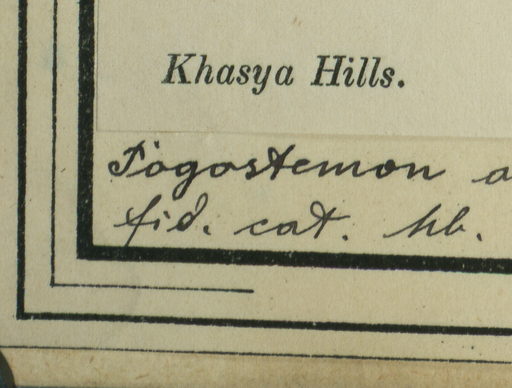 Khasya Hills.
Pogostemon a
fid. cat. hb.